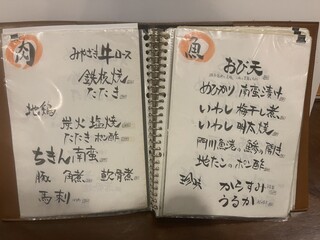 肉
みやざき牛ロース
鉄板焼
たたき
地鶏
炭火塩焼
たたきポン酢
ちきん南蛮
豚 角煮 軟骨煮
馬刺
魚
おび天
めひかり 南蛮漬け
いわし 梅干し煮
いわし 明太焼
門川直送 鯵の開き
地たこのポン酢
珍味
からすみ
うるか